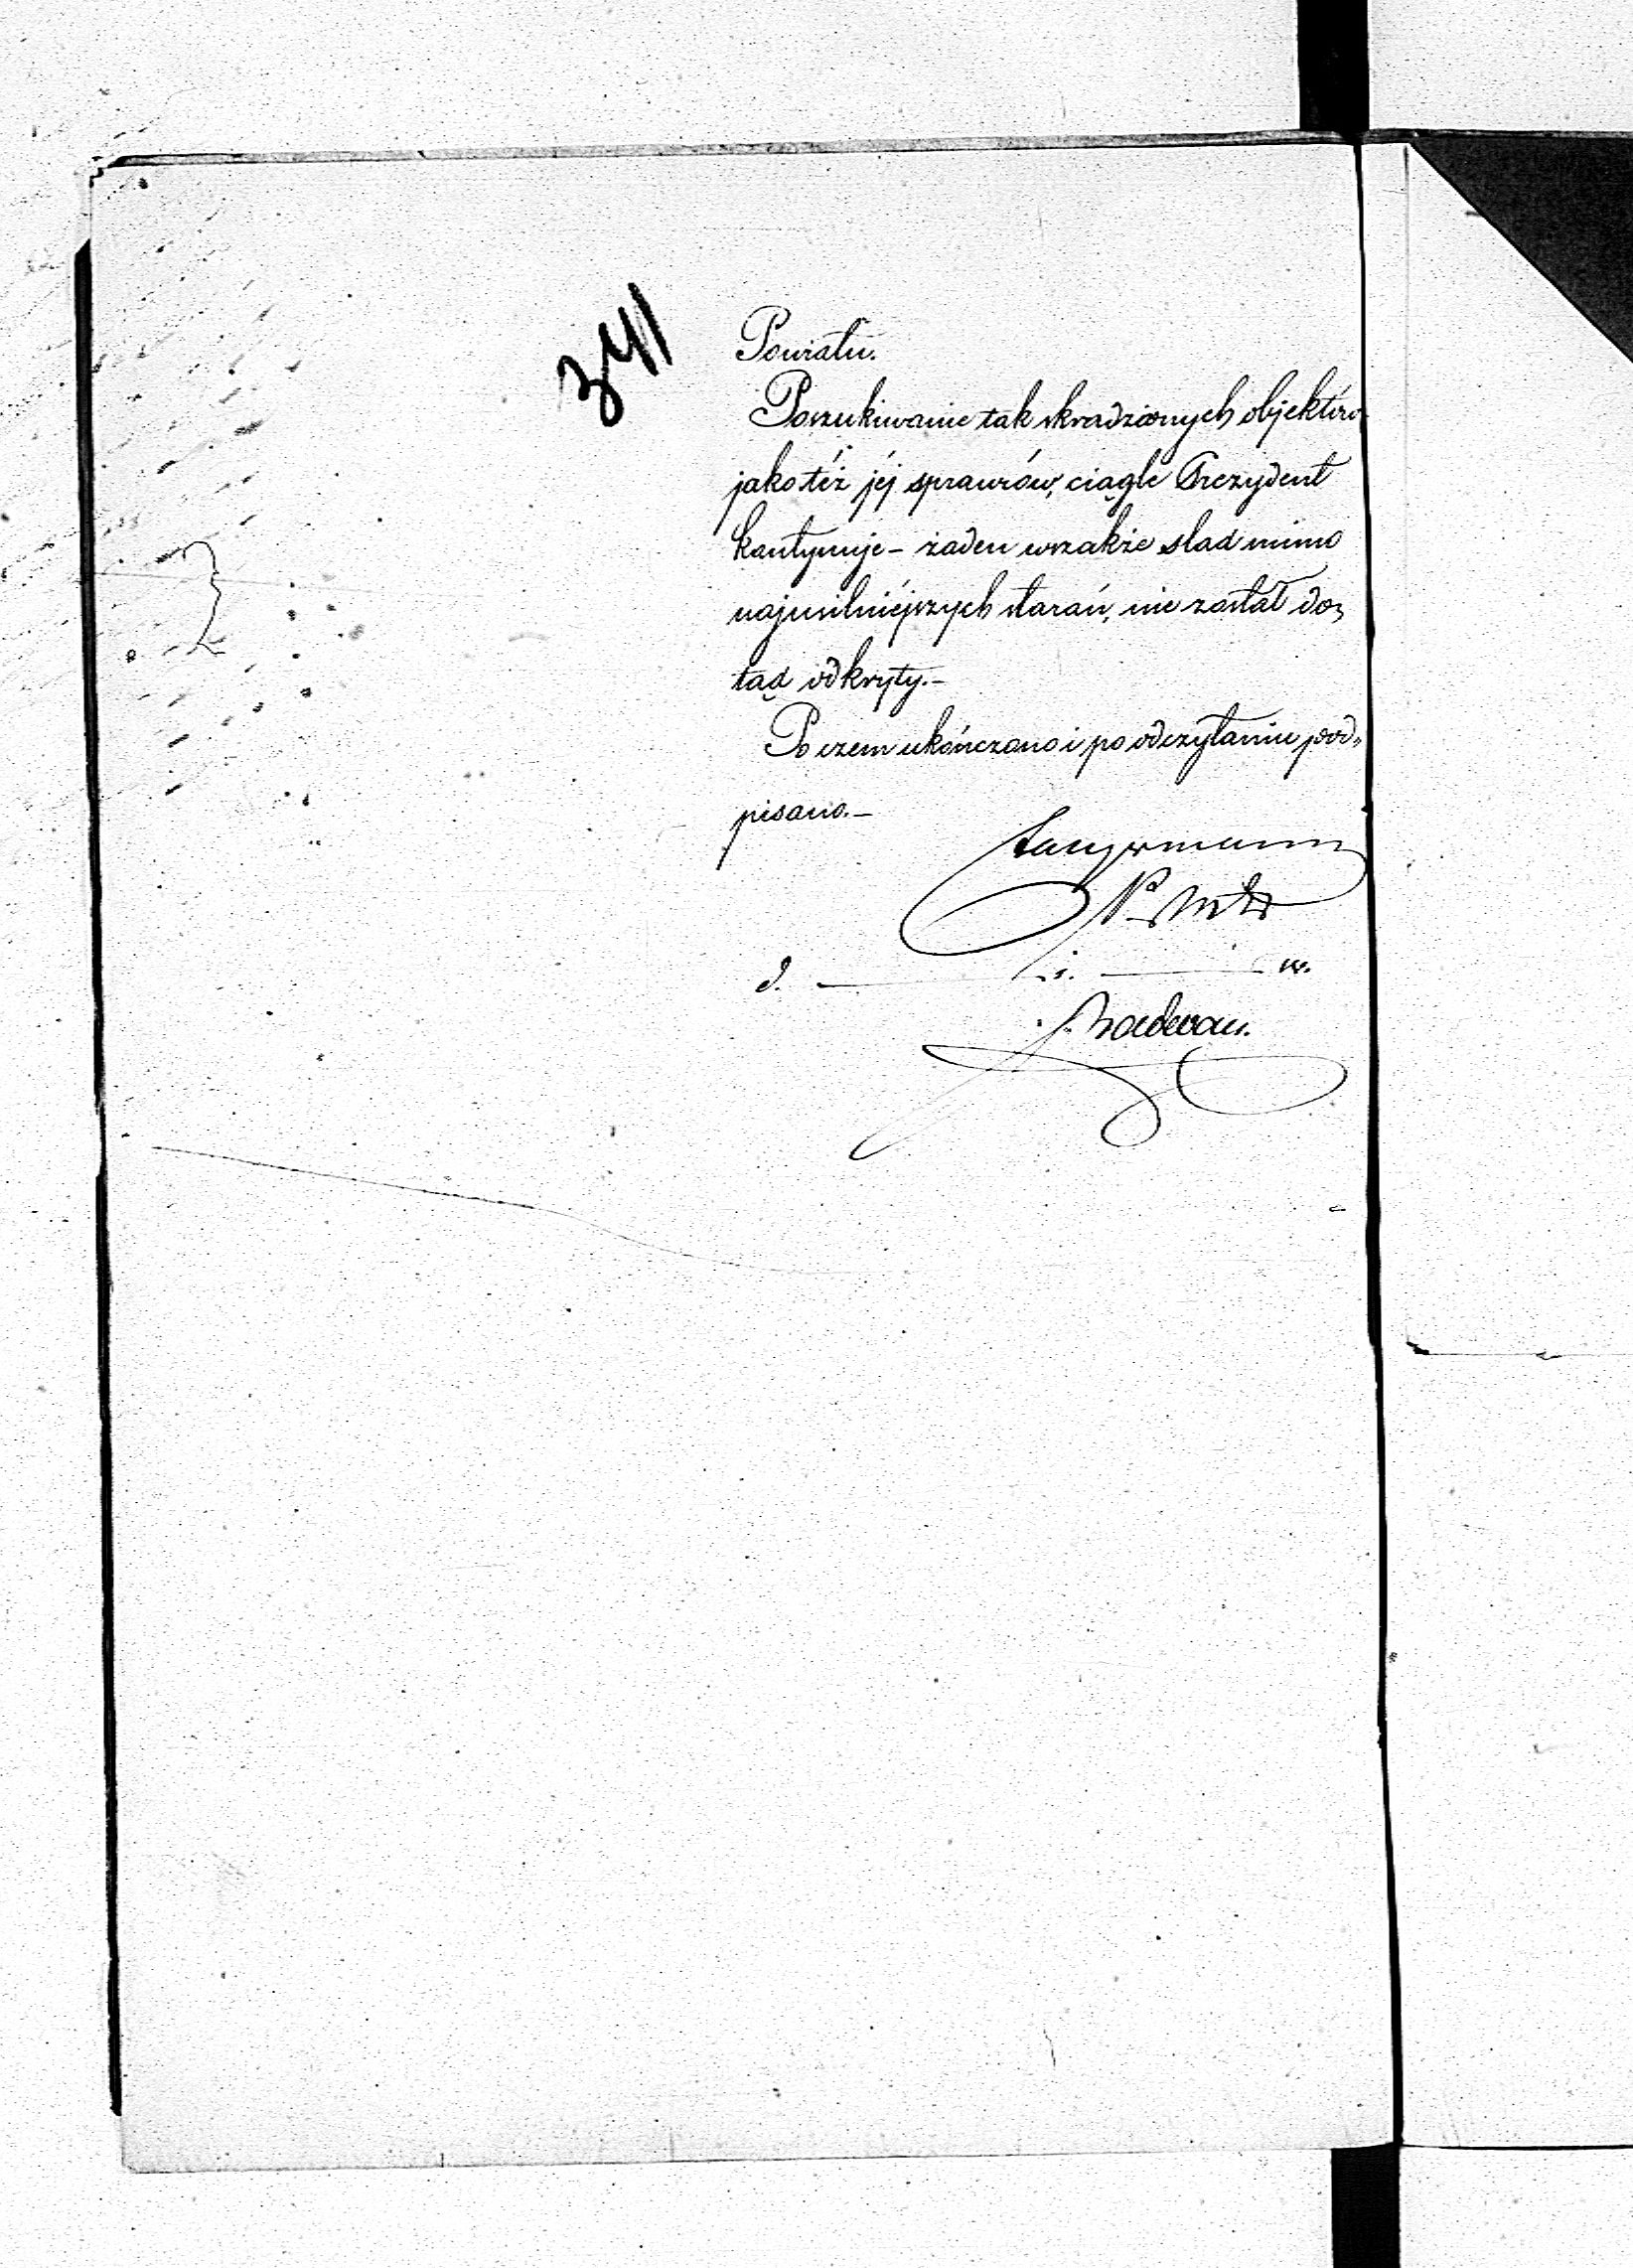 341
Powiatu.
Poszukiwanie tak skradzionych objektów
jakotéż jéj sprawców, ciągle Prezydent
kontynuje – żaden wszakże slad mimo
najusilniéjszych starań, nie został do„
tąd odkryty.–
Po czem ukończono i po odczytaniu pod„
pisano.–
d. — u. s. — w.